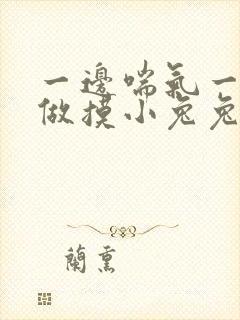 一邊喘氣一
做摸小兔兔
蘭熏